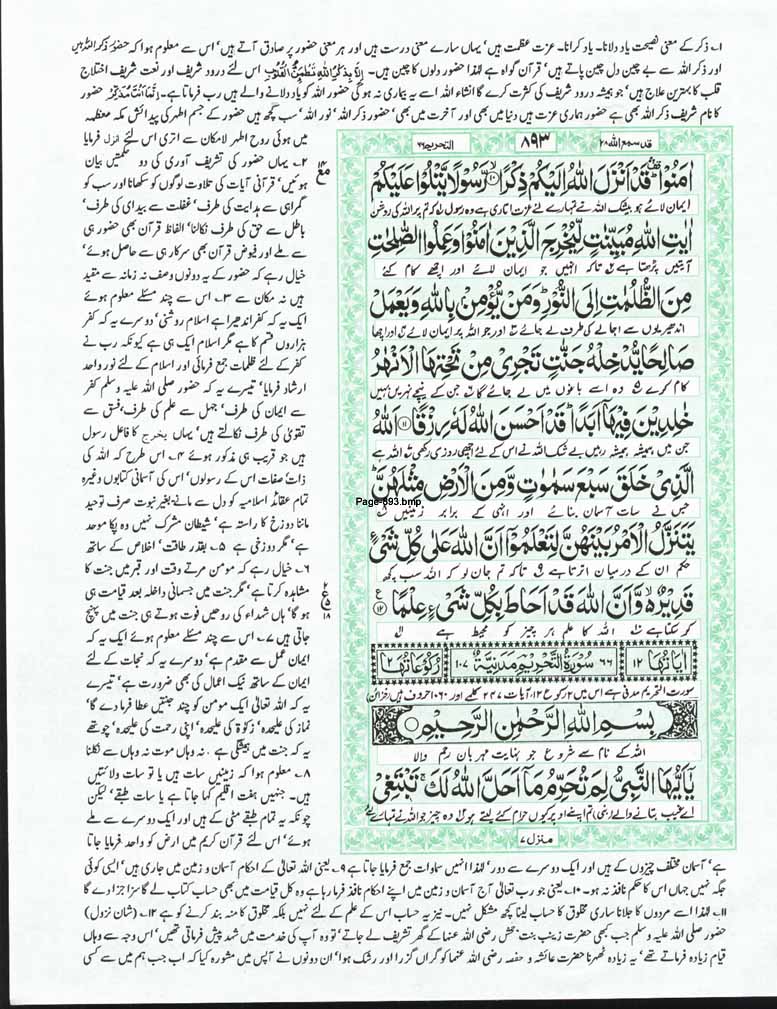 ۱۔ ذکر کے معنی نصیحت یاد دلانا۔ یاد کرانا۔ عزت عظمت ہیں' یہاں سارے معنی درست ہیں اور ہر معنی حضور پر صادق آتے ہیں' اس سے معلوم ہوا کہ حضور ذکر اللہ ہیں
اور ذکر اللہ سے بے چین دل چین پاتے ہیں' قرآن گواہ ہے لہذا حضور دلوں کا چین ہیں۔ اَلَا بِذِكْرِ اللّٰهِ تَطْمَئِنُّ الْقُلُوْبُ اس لئے درود شریف اور نعت شریف اختلاج
قلب کا بہترین علاج ہیں' جو ہمیشہ درود شریف کی کثرت کرے گا انشاء اللہ اسے یہ بیماری نہ ہوگی حضور اللہ کو یاد دلانے والے ہیں رب فرماتا ہے۔ اِنَّمَا اَنْتَ مُذَكِّرٌ حضور
کا نام شریف ذکر اللہ بھی ہے حضور ہماری عزت ہیں دنیا میں بھی اور آخرت میں بھی' حضور ذکر اللہ' نور اللہ' سب کچھ ہیں حضور کے جسم اطہر کی پیدائش مکہ معظمہ
میں ہوئی روح اطہر لامکان سے اتری اس لئے انزل فرمایا
۲۔ یہاں حضور کی تشریف آوری کی دو حکمتیں بیان
ہوئیں' قرآنی آیات کی تلاوت لوگوں کو سکھانا اور سب کو
گمراہی سے ہدایت کی طرف' غفلت سے بیداری کی طرف'
باطل سے حق کی طرف نکالنا' الفاظ قرآن بھی حضور ہی
سے ملے اور فیوض قرآن بھی سرکار ہی سے حاصل ہوئے'
خیال رہے کہ حضور کے یہ دونوں وصف نہ زمانہ سے مقید
ہیں نہ مکان سے ۳۔ اس سے چند مسئلے معلوم ہوئے
ایک یہ کہ کفر اندھیرا ہے اسلام روشنی' دوسرے یہ کہ کفر
ہزاروں قسم کا ہے مگر اسلام ایک ہی ہے کیونکہ رب نے
کفر کے لئے ظلمات جمع فرمائی اور اسلام کے لئے نور واحد
ارشاد فرمایا' تیسرے یہ کہ حضور صلی اللہ علیہ وسلم کفر
سے ایمان کی طرف' جہل سے علم کی طرف' فسق سے
تقویٰ کی طرف نکالتے ہیں' یہاں یخرج کا فاعل رسول
ہیں جو قریب ہی مذکور ہوئے ۴۔ اس طرح کہ اللہ کی
ذات' صفات اس کے رسولوں' اس کی آسمانی کتابوں وغیرہ
تمام عقائد اسلامیہ کو دل سے مانے۔ بغیر نبوت صرف توحید
ماننا دوزخ کا راستہ ہے' شیطان مشرک نہیں وہ پکا موحد
ہے' مگر دوزخی ہے ۵۔ بقدر طاقت' اخلاص کے ساتھ
۶۔ خیال رہے کہ مومن مرتے وقت اور قبر میں جنت کا
مشاہدہ کرتا ہے' مگر جنت میں جسمانی داخلہ بعد قیامت ہی
ہوگا' ہاں شہداء کی روحیں فوت ہوتے ہی جنت میں پہنچ
جاتی ہیں ۷۔ اس سے چند مسئلے معلوم ہوئے ایک یہ کہ
ایمان عمل سے مقدم ہے' دوسرے یہ کہ نجات کے لئے
ایمان کے ساتھ نیک اعمال کی بھی ضرورت ہے' تیسرے
یہ کہ اللہ تعالیٰ ایک مومن کو چند جنتیں عطا فرمادے گا'
نماز کی علیحدہ' زکوۃ کی علیحدہ' اپنی رحمت کی علیحدہ' چوتھے
یہ کہ جنت میں ہمیشگی ہے' نہ وہاں موت نہ وہاں سے نکلنا
۸۔ معلوم ہوا کہ زمینیں سات ہیں یا تو سات ولائتیں
ہیں۔ جنہیں ہفت اقلیم کہا جاتا ہے یا سات طبقے' لیکن
چونکہ یہ تمام طبقے مٹی کے ہیں اور ایک دوسرے سے ملے
ہوئے' اس لئے قرآن کریم میں ارض کو واحد فرمایا جاتا
قد سمع اللہ ۲۸
۸۹۳
التحریم ۶۶
اٰمَنُوْا ؕ قَدْ اَنْزَلَ اللّٰهُ اِلَیْكُمْ ذِكْرًا ۙ۱۰ رَّسُوْلًا یَّتْلُوْا عَلَیْكُمْ
ایمان لائے ہو بیشک اللہ نے تمہارے لئے عزت اتاری ہے وہ رسول کہ تم پر اللہ کی روشن
اٰیٰتِ اللّٰهِ مُبَیِّنٰتٍ لِّیُخْرِجَ الَّذِیْنَ اٰمَنُوْا وَ عَمِلُوا الصّٰلِحٰتِ
آیتیں پڑھتا ہے تاکہ انہیں جو ایمان لائے اور اچھے کام کئے
مِنَ الظُّلُمٰتِ اِلَی النُّوْرِ ؕ وَ مَنْ یُّؤْمِنْۢ بِاللّٰهِ وَ یَعْمَلْ
اندھیریوں سے اجالے کی طرف لے جائے اور جو اللہ پر ایمان لائے اور اچھا
صَالِحًا یُّدْخِلْهُ جَنّٰتٍ تَجْرِیْ مِنْ تَحْتِهَا الْاَنْهٰرُ
کام کرے وہ اسے باغوں میں لے جائے گا جن کے نیچے نہریں بہیں
خٰلِدِیْنَ فِیْهَاۤ اَبَدًا ؕ قَدْ اَحْسَنَ اللّٰهُ لَهٗ رِزْقًا ۱۱ اَللّٰهُ
جن میں ہمیشہ ہمیشہ رہیں بے شک اللہ نے اس کے لئے اچھی روزی رکھی اللہ ہے
الَّذِیْ خَلَقَ سَبْعَ سَمٰوٰتٍ وَّ مِنَ الْاَرْضِ مِثْلَهُنَّ ؕ
جس نے سات آسمان بنائے اور انہی کے برابر زمینیں
Page-893.bmp
یَتَنَزَّلُ الْاَمْرُ بَیْنَهُنَّ لِتَعْلَمُوْۤا اَنَّ اللّٰهَ عَلٰی كُلِّ شَیْءٍ
حکم ان کے درمیان اترتا ہے تاکہ تم جان لو کہ اللہ سب کچھ
قَدِیْرٌ ۙ۬ وَّ اَنَّ اللّٰهَ قَدْ اَحَاطَ بِكُلِّ شَیْءٍ عِلْمًا ۱۲
کر سکتا ہے اللہ کا علم ہر چیز کو محیط ہے
اٰیَاتُهَا ۱۲ ۶۶ سُوْرَةُ التَّحْرِیْمِ مَدَنِیَّةٌ ۱۰۷ رُكُوْعَاتُهَا ۲
سورت التحریم مدنی ہے اس میں ۲ رکوع ۱۲ آیات ۲۴۷ کلمے اور ۱۰۶۰ حروف ہیں (خزائن)
بِسْمِ اللّٰهِ الرَّحْمٰنِ الرَّحِیْمِ
اللہ کے نام سے شروع جو نہایت مہربان رحم والا
یٰۤاَیُّهَا النَّبِیُّ لِمَ تُحَرِّمُ مَاۤ اَحَلَّ اللّٰهُ لَكَ ۚ تَبْتَغِیْ
اے غیب بتانے والے (نبی) تم اپنے اوپر کیوں حرام کئے لیتے ہو وہ چیز جو اللہ نے تمہارے لئے
منزل ۷
ہے' آسمان مختلف چیزوں کے ہیں اور ایک دوسرے سے دور' لہذا انہیں سماوات جمع فرمایا جاتا ہے ۹۔ یعنی اللہ تعالیٰ کے احکام آسمان و زمین میں جاری ہیں' ایسی کوئی
جگہ نہیں جہاں اس کا حکم نافذ نہ ہو۔ ۱۰۔ یعنی جو رب تعالیٰ آج آسمان و زمین میں اپنے احکام نافذ فرما رہا ہے وہ کل قیامت میں بھی حساب کتاب لے گا سزا جزا دے گا
۱۱۔ لہذا اسے مردوں کا جلانا ساری مخلوق کا حساب لینا کچھ مشکل نہیں۔ نیز یہ حساب اس کے علم کے لئے نہیں بلکہ مخلوق کا منہ بند کرنے کو ہے ۱۲۔ (شان نزول)
حضور صلی اللہ علیہ وسلم جب کبھی حضرت زینب بنت جحش رضی اللہ عنہا کے گھر تشریف لے جاتے' تو وہ آپ کی خدمت میں شہد پیش فرماتی تھیں' اس وجہ سے وہاں
قیام زیادہ فرماتے تھے' یہ زیادہ ٹھہرنا حضرت عائشہ و حفصہ رضی اللہ عنہما کو گراں گزرا اور رشک ہوا' ان دونوں نے آپس میں مشورہ کیا کہ اب جب ہم میں سے کسی